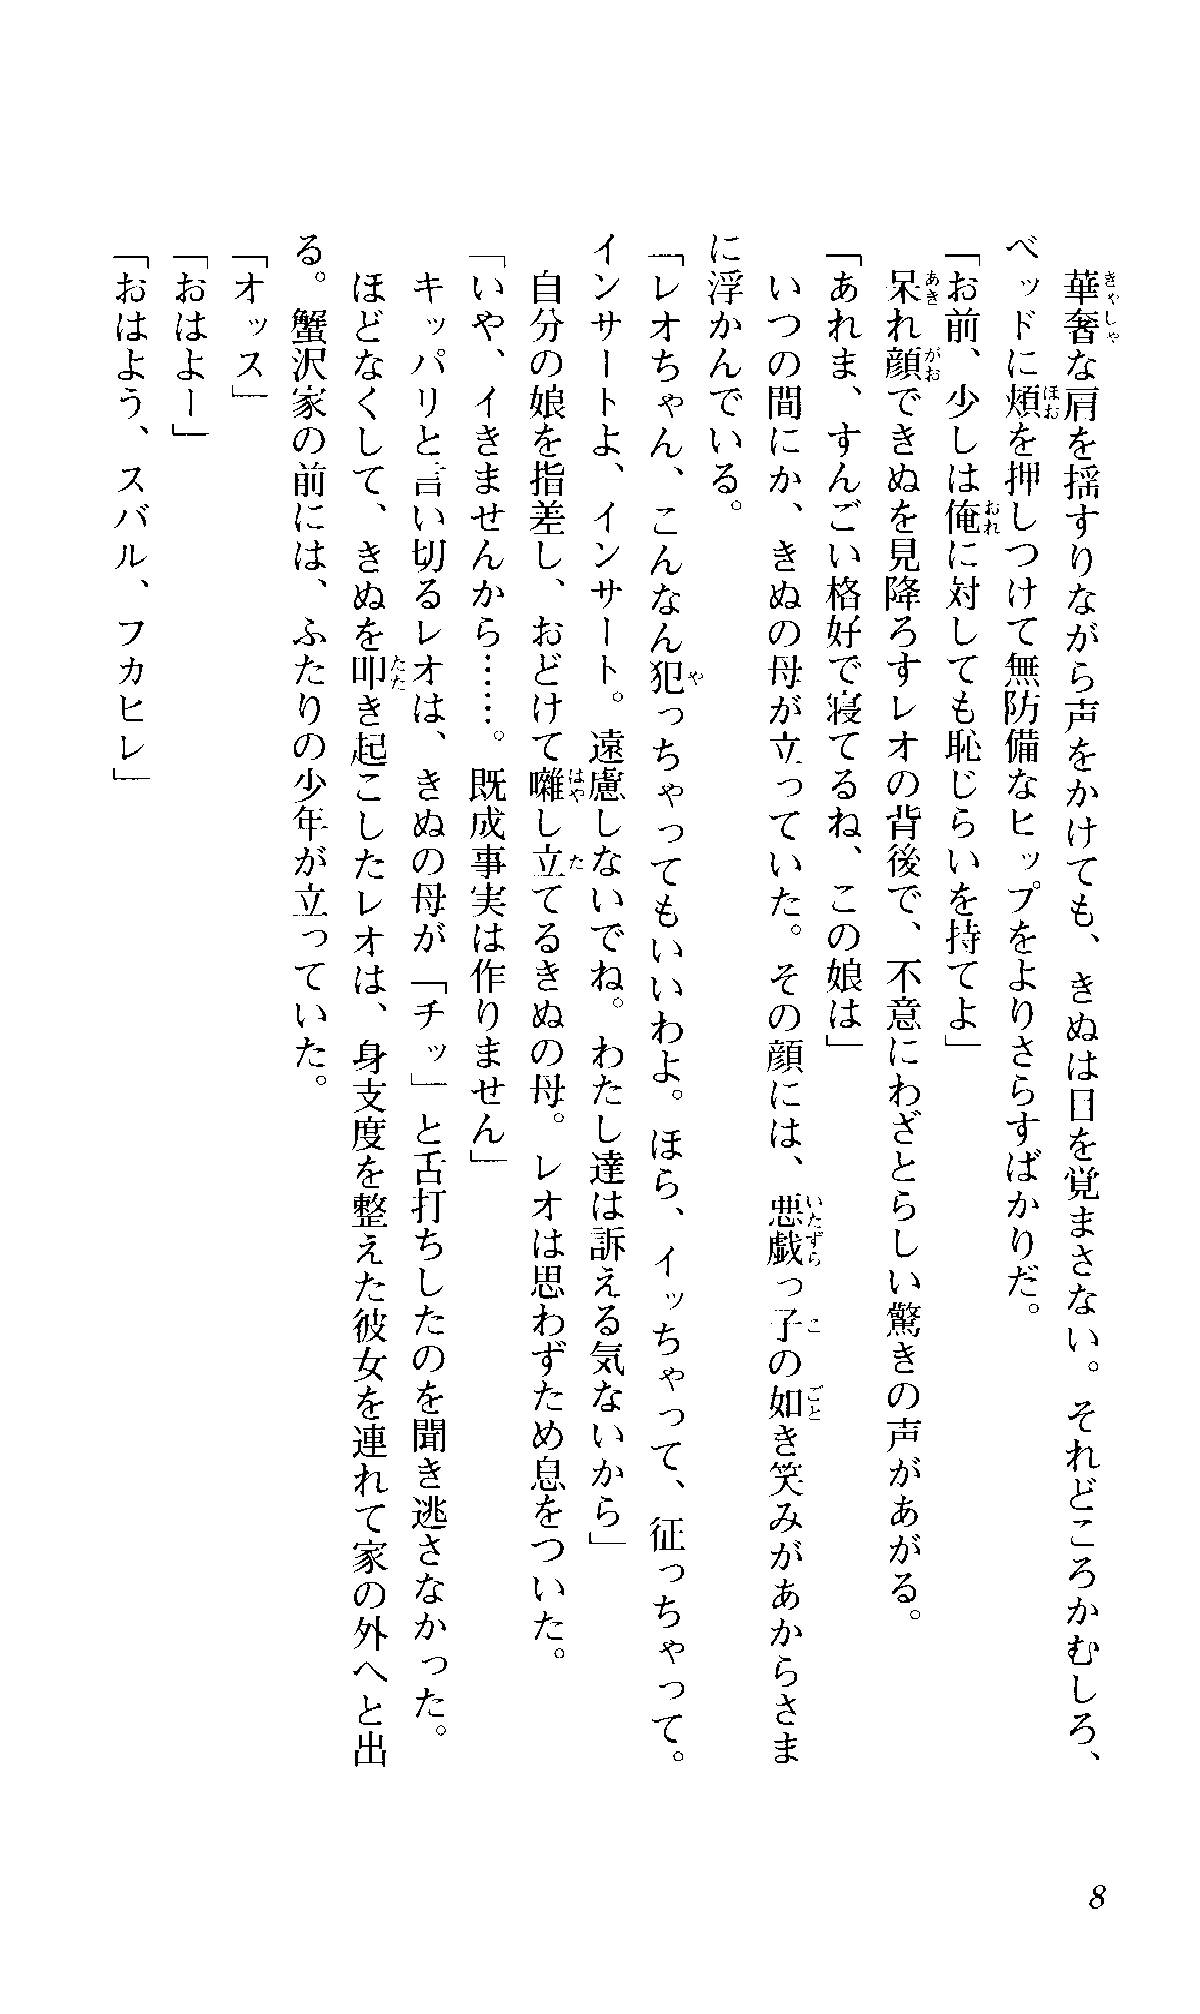 華奢な肩を揺すりながら声をかけても、きぬは目を覚まさない。それどころかむしろ、
ベッドに頬を押しつけて無防備なヒップをよりさらすばかりだ。
「お前、少しは俺に対しても恥じらいを持てよ」
呆れ顔できぬを見降ろすレオの背後で、不意にわざとらしい驚きの声があがる。
「あれま、すんごい格好で寝てるね、この娘は」
いつの間にか、きぬの母が立っていた。その顔には、悪戯っ子の如き笑みがあからさま
に浮かんでいる。
「レオちゃん、こんなん犯っちゃってもいいわよ。ほら、イッちゃって、征っちゃって。
インサートよ、インサート。遠慮しないでね。わたし達は訴える気ないから」
自分の娘を指差し、おどけて囃し立てるきぬの母。レオは思わずため息をついた。
「いや、イきませんから……。既成事実は作りません」
キッパリと言い切るレオは、きぬの母が「チッ」と舌打ちしたのを聞き逃さなかった。
ほどなくして、きぬを叩き起こしたレオは、身支度を整えた彼女を連れて家の外へと出
る。蟹沢家の前には、ふたりの少年が立っていた。
「オッス」
「おはよー」
「おはよう、スバル、フカヒレ」
8